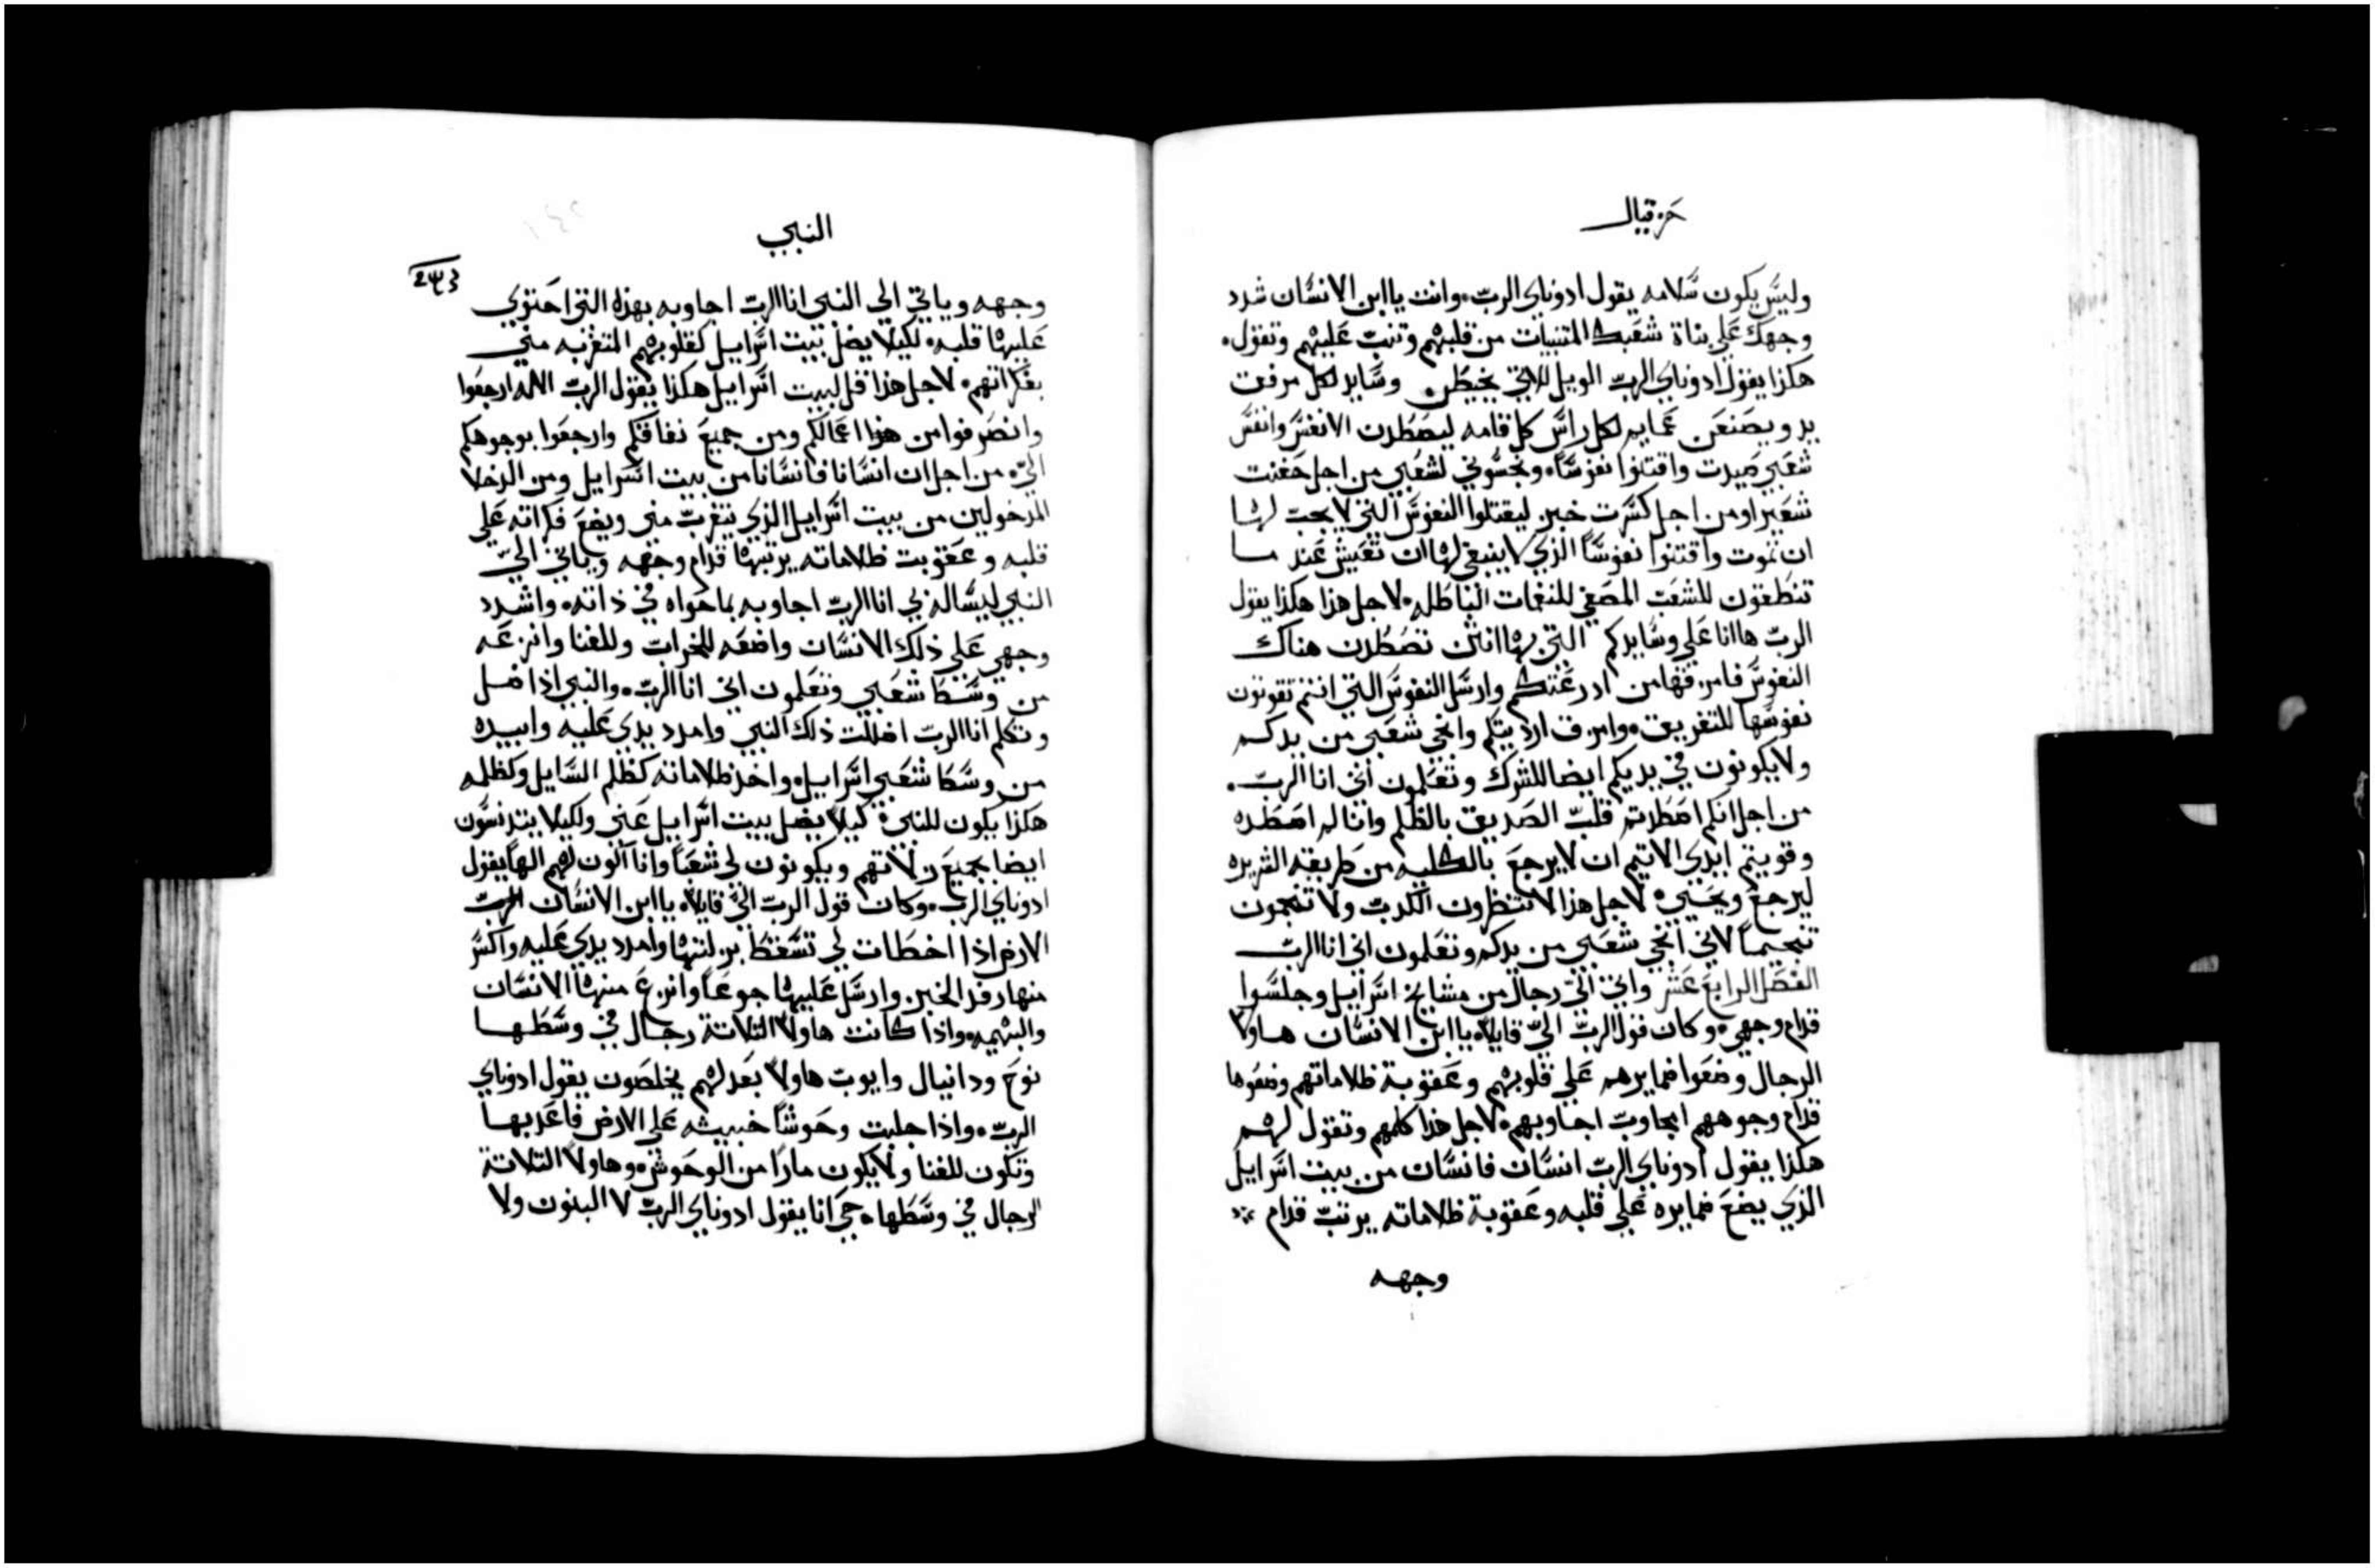 حزقيال
وليس يكون سلامه يقول ادوناي الرب. وانت ياابن الانسان شدد
وجهك علي بناة شعبك المتنبيات من قلبهم وتنب عليهم وتقول.
هكذا يقول ادوناي الرب الويل للاتي يخيطن وسايد لكل مرفق
يد ويصنعن عمايم لكل راس كل قامه ليصطدن الانفس وانفس
شعبي صيدت واقتنوا نفوسا. ونجسوني لشعبي من اجل حفنت
شعير او من اجل كسرت خبز ليقتلوا النفوس التي لا يجب لها
ان تموت واقتنوا نفوسا الذي لا ينبغي لها ان تعيش عند ما
تنطقون للشعب المصغي للنغمات الباطله. لاجل هذا هكذا يقول
الرب هاانا علي وسايدكم التي بها انتن تصطدن هناك
النفوس فامزقها من ادرعتكم وارسل النفوس التي انتم تقونون
نفوسها للتفريق. وامزق ارديتكم وانجي شعبي من يدكم
ولا يكونون في يديكم ايضا للشرك وتعلمون اني انا الرب.
من اجل انكم اضطدتم قلب الصديق بالظلم وانا لم اضطده
وقويتم ايدي الاتيم ان لا يرجع بالكليه من طريقه الشريره
ليرجع ويحييه. لاجل هذا لا تنظرون الكدب ولا تنجمون
تنجيماً لاني انجي شعبي من يدكم وتعلمون اني انا الرب
الفصل الرابع عشر واتي الي رجال من مشايخ اسراييل وجلسوا
قدام وجهي. وكان قول الرب الي قايلا. ياابن الانسان هاولا
الرجال وضعوا ضمايرهم علي قلوبهم وعقوبة ظلاماتهم وضعوها
قدام وجوههم ايجاوب اجاوبهم. لاجل هذا كلمهم وتقول لهم
هكذا يقول ادوناي الرب انسان فانسان من بيت اسراييل
الذي يضع ضمايره علي قلبه وعقوبة ظلاماته يرتب قدام
وجهه
النبي
وجهه وياتي الي النبي انا الرب اجاوبه بهذه التي احتوي
عليها قلبه. لكيلا يضل بيت اسراييل كقلوبهم المتغربه مني
بفكراتهم. لاجل هذا قل لبيت اسراييل هكذا يقول الرب الاله ارجعوا
وانصرفوا من اعمالكم ومن جميع نفاقكم وارجعوا بوجوهكم
الي. من اجل ان انسانا فانسانا من بيت اسراييل ومن الدخلا
المدخولين من بيت اسراييل الذي يتغرب مني ويضع فكراته علي
قلبه وعقوبت ظلاماته يرتبها قدام وجهه وياتي الي
النبي ليساله بي انا الرب اجاوبه بما حواه في ذاته. واشدد
وجهي علي ذلك الانسان واضعه للخراب وللفنا وانزعه
من وسط شعبي وتعلمون اني انا الرب. والنبي اذا ضل
وتكلم انا الرب اضللت ذلك النبي وامدد يدي عليه وابيده
من وسط شعبي اسراييل. واخذ ظلاماته كظلم السايل وكظلمه
هكذا يكون للنبي. كيلا يضل بيت اسراييل عني ولكيلا يتدنسون
ايضا بجميع زلاتهم ويكونون لي شعباً وانا اكون لهم الهاً يقول
ادوناي الرب. وكان قول الرب الي قايلا. ياابن الانسان
الارض اذا اخطات لي تسقط بزلتها وامدد يدي عليه واكسر
منها رفد الخبز وارسل عليها جوعاً وانزع منها الانسان
والبهيمه. واذا كانت هاولا التلاتة رجال في وسطها
نوح ودانيال وايوب هاولا بعدلهم يخلصون يقول ادوناي
الرب. واذا جلبت وحوشاً خبيثه علي الارض فاعدبها
وتكون للفنا ولا يكون مارا من الوحوش. وهاولا التلاتة
الرجال في وسطها. حي انا يقول ادوناي الرب لا البنون ولا